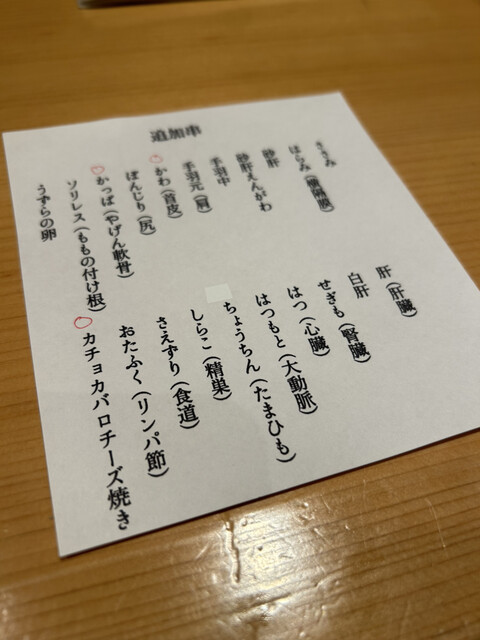 追加串
ささみ
はらみ（横隔膜）
砂肝
砂肝えんがわ
手羽中
手羽元（肩）
かわ（首皮）
ぼんじり（尻）
かっぱ（やげん軟骨）
ソリレス（ももの付け根）
うずらの卵
肝（肝臓）
白肝
せぎも（腎臓）
はつ（心臓）
はつもと（大動脈）
ちょうちん（たまひも）
しらこ（精巣）
さえずり（食道）
おたふく（リンパ節）
カチョカバロチーズ焼き